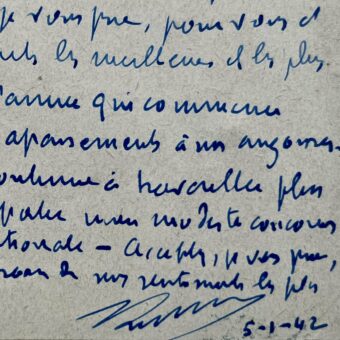 je vous prie, pour vous et
les meilleurs et les plus
l'année qui commence
apaisements à nos angoisses
continue à travailler plus
modeste concours
nationale – Acceptez, je vous prie,
de nos sentiments les plus
5-1-42